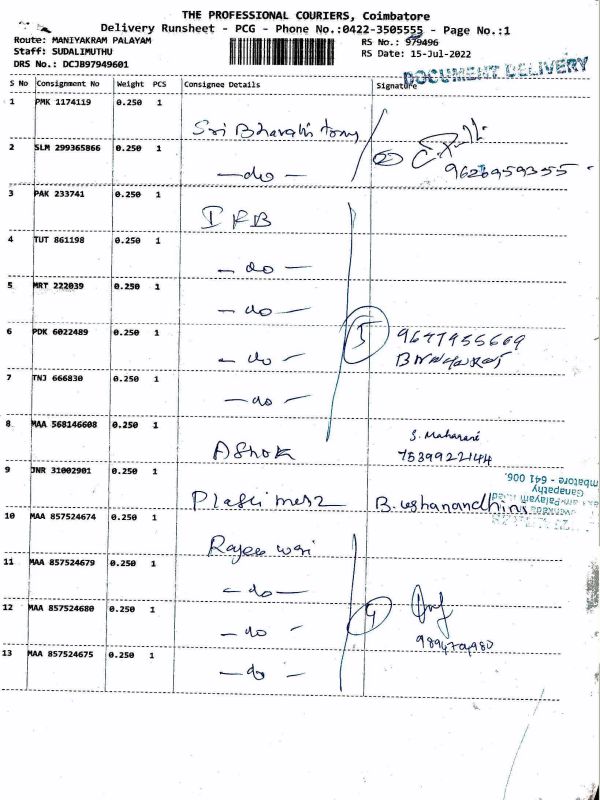 THE PROFESSIONAL COURIERS, Coimbatore
Delivery Runsheet - PCG - Phone No.:0422-3505555 - Page No.:1
Route: MANIYAKRAM PALAYAM RS No.: 979496
Staff: SUDALIMUTHU RS Date: 15-Jul-2022
DRS No.: DCJB97949601
DOCUMENT DELIVERY
S No Consignment No Weight PCS Consignee Details Signature
1 PMK 1174119 0.250 1
Sri Bharathi
2 SLM 299365866 0.250 1
2
- do -
3 PAK 233741 0.250 1
4 TUT 861198 0.250 1
- do -
5 MRT 222039 0.250 1
- do -
6 PDK 6022489 0.250 1
5
- do -
7 TNJ 666830 0.250 1
- do -
8 MAA 568146608 0.250 1
S. Maharani
Ashok 7539922144
9 JNR 31002901 0.250 1
mbatore - 641 006.
Ganapathy
10 MAA 857524674 0.250 1
11 MAA 857524679 0.250 1
- do -
12 MAA 857524680 0.250 1
4
- do -
13 MAA 857524675 0.250 1
- do -